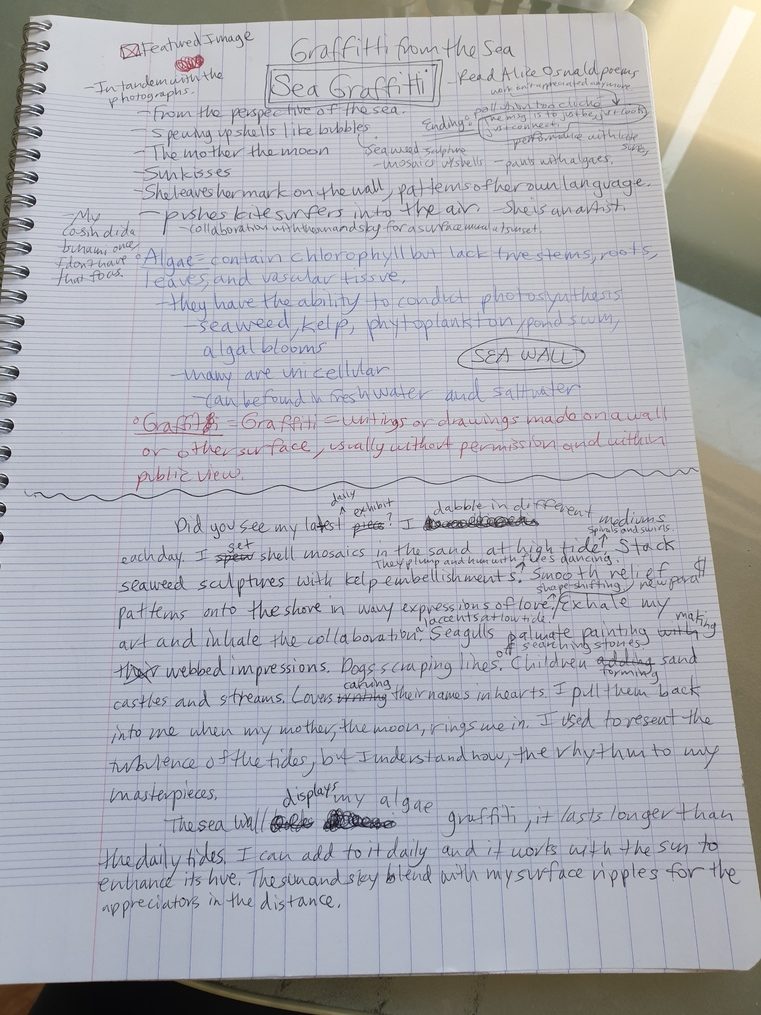 Featured Image
Graffitti from the Sea
Sea Graffitti
- In tandem with the
photographs.
- Read Alice Oswald poems
- From the perspective of the sea.
- Spewing up shells like bubbles.
- The mother the moon
- Sunkisses
Ending:
pollution too cliché
The msg is to just be, just look,
just connect.
performance with kite
surfers
Seaweed sculpture
- mosaics w/ shells
- paints with algaes.
- She leaves her mark on the wall, patterns of her own language.
- pushes kite surfers into the air. - She is an artist.
- collaboration with the sun and sky for a surface mural at sunset.
- My
cousin did a
bunami once
I don't have
that focus.
Algae = contain chlorophyll but lack true stems, roots,
leaves, and vascular tissue.
- they have the ability to conduct photosynthesis
- seaweed, kelp, phytoplankton, pond scum,
algal blooms
SEA WALL
- many are unicellular
- can be found in freshwater and saltwater
Graffiti = Graffiti = writings or drawings made on a wall
or other surface, usually without permission and within
public view.
daily
exhibit
dabble in different
Did you see my latest piece? I
mediums
spirals and swirls.
each day. I spew set shell mosaics in the sand at high tide. Stack
They plump and hum with tides dancing.
seaweed sculptures with kelp embellishments. Smooth relief
shapeshifting
patterns onto the shore in wavy expressions of love. Exhale my
accents at low tide.
making
art and inhale the collaboration. Seagulls palmate painting with
off searching stones
their webbed impressions. Dogs scraping lines. Children adding sand
forming
carving
castles and streams. Lovers writing their names in hearts. I pull them back
into me when my mother, the moon, rings me in. I used to resent the
turbulence of the tides, but I understand now, the rhythm to my
masterpieces.
displays my algae
The sea wall graffiti, it lasts longer than
the daily tides. I can add to it daily and it works with the sun to
enhance its hue. The sun and sky blend with my surface ripples for the
appreciators in the distance.